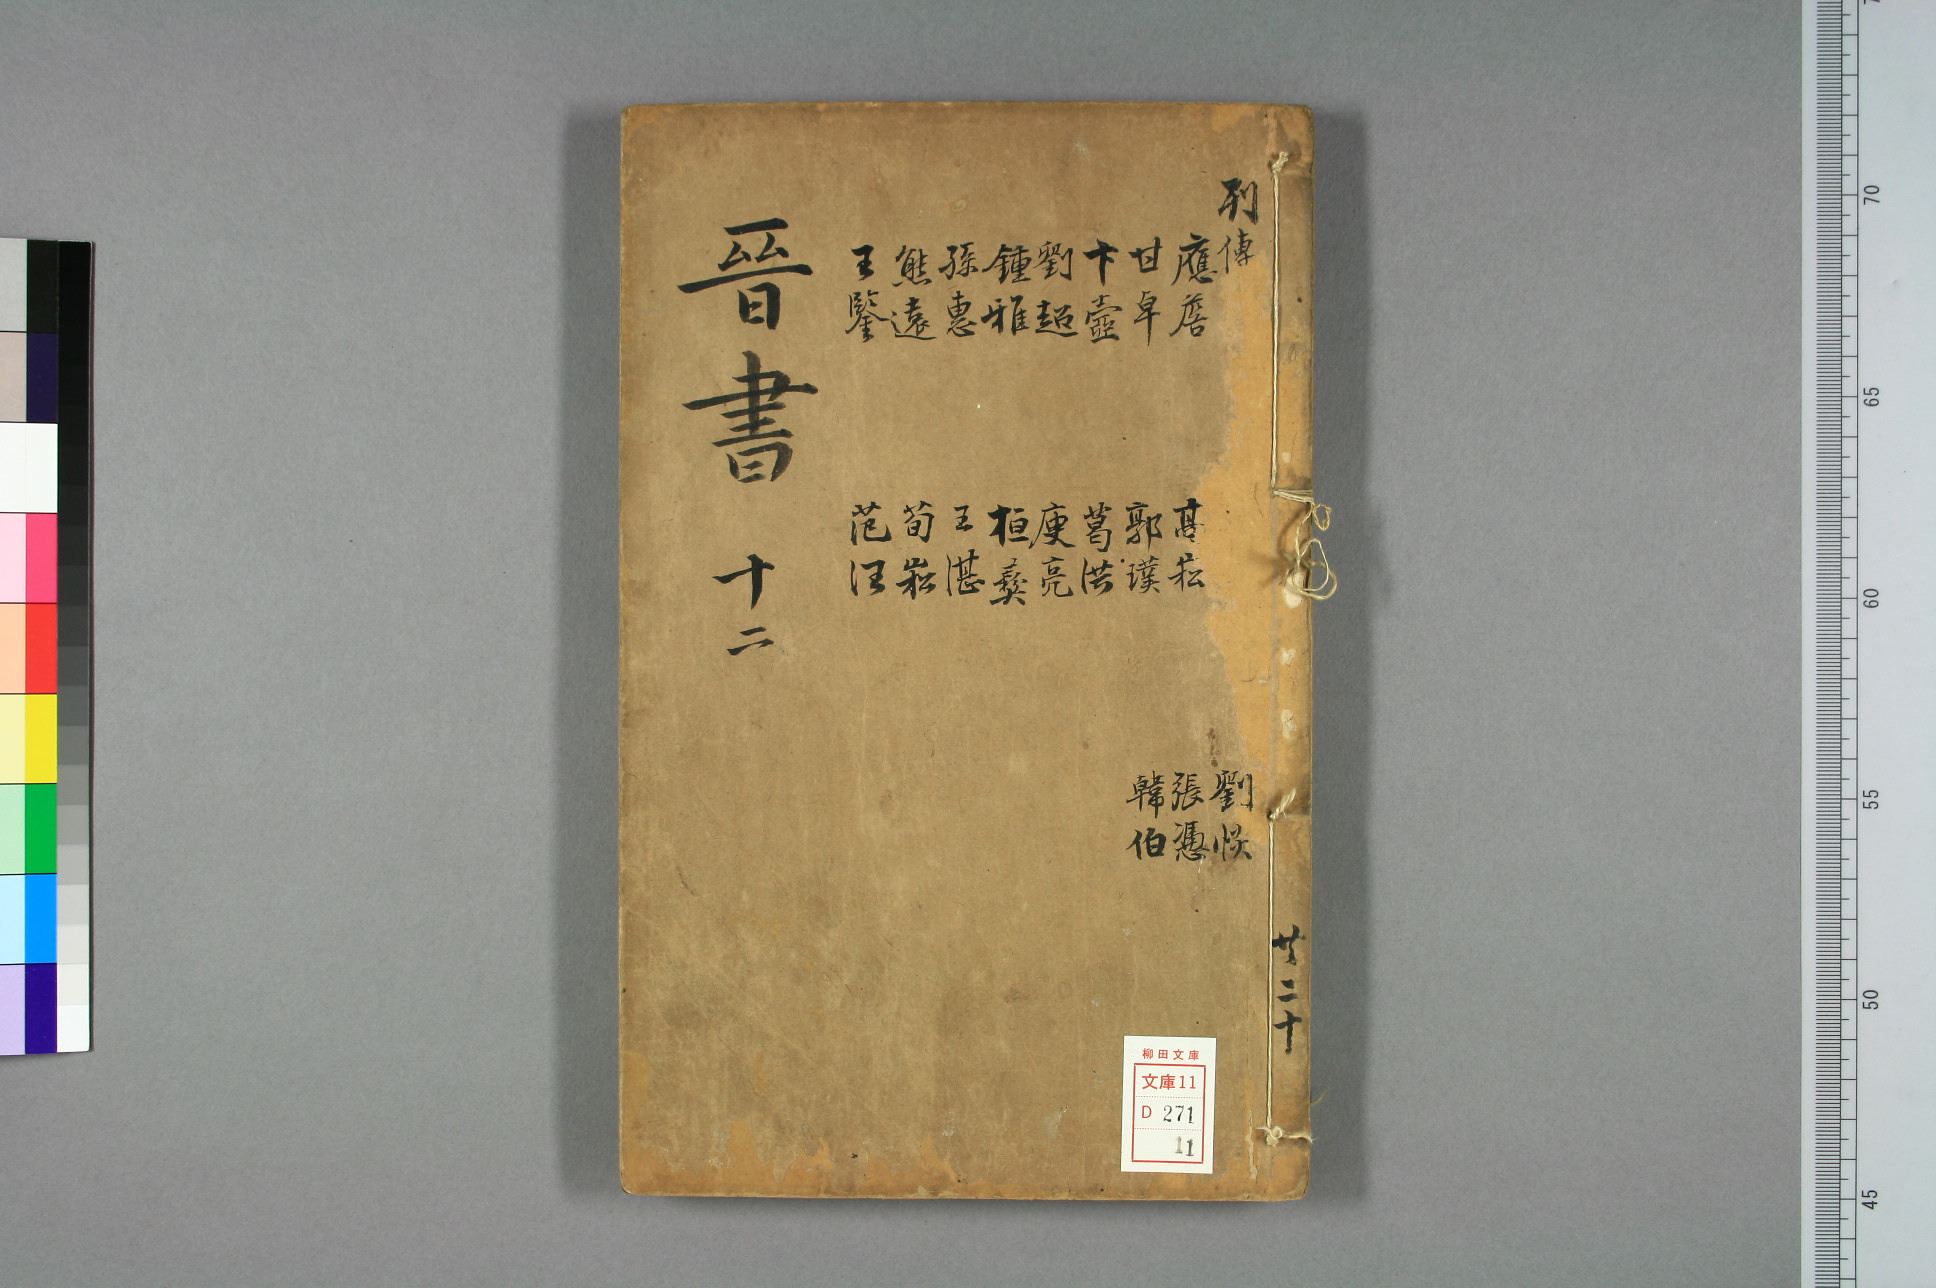 列傳
應詹
甘卓
卞壼
劉超
鍾雅
孫惠
熊遠
王鑒
高崧
郭璞
葛洪
庾亮
桓彝
王湛
荀崧
范汪
劉惔
張憑
韓伯
晉書 十二
廿二十
柳田文庫
文庫11
D 271
11
70
65
60
55
50
45